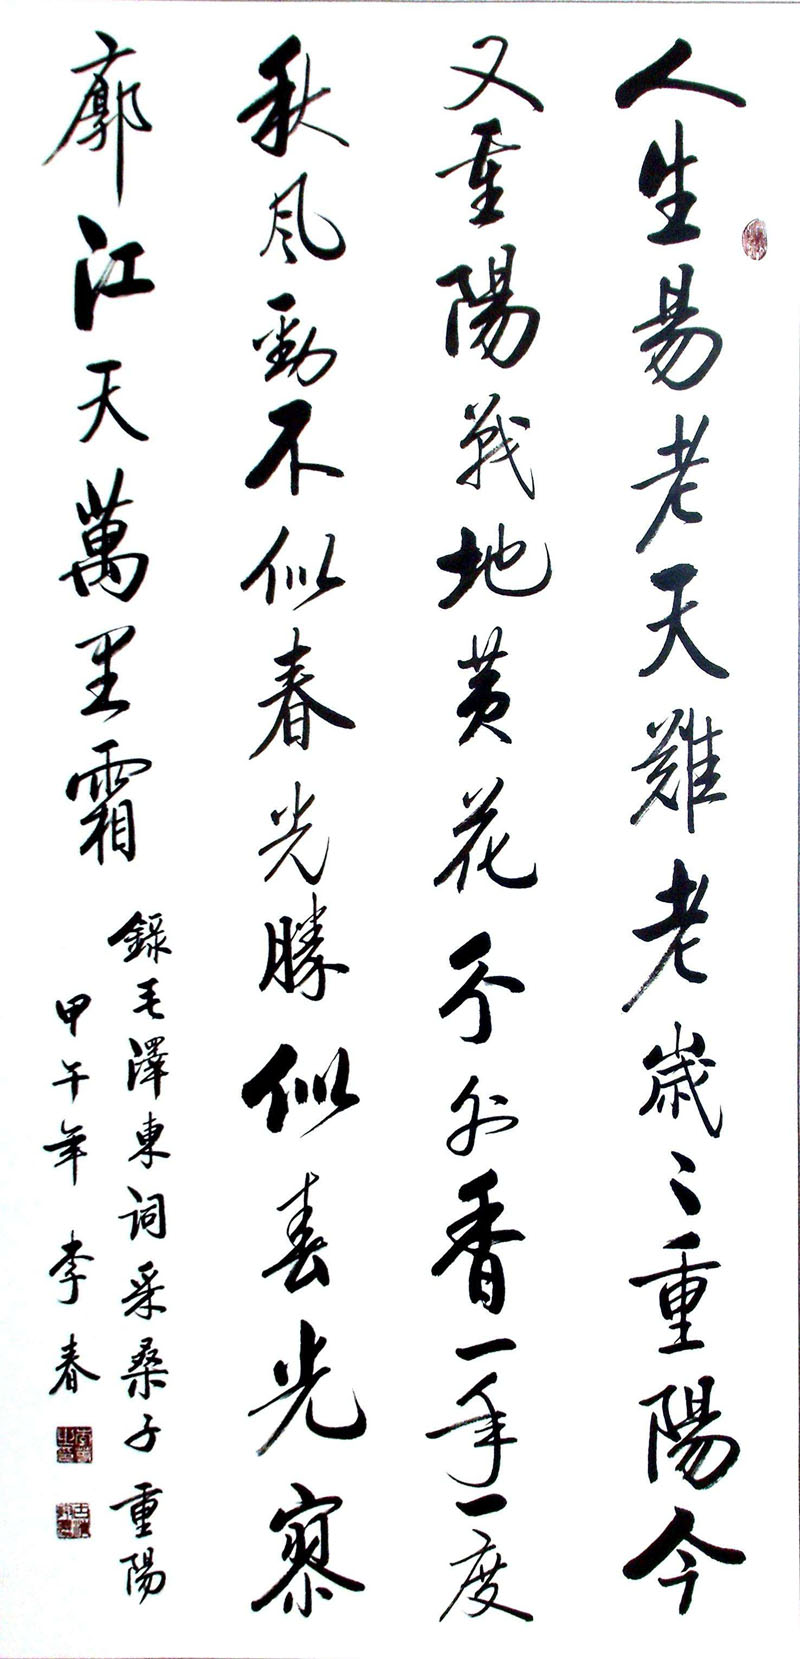 人生易老天難老歲〻重陽今
又重陽戰地黃花分外香一年一度
秋風勁不似春光勝似春光寥
廓江天萬里霜
錄毛澤東詞采桑子重陽
甲午年李春